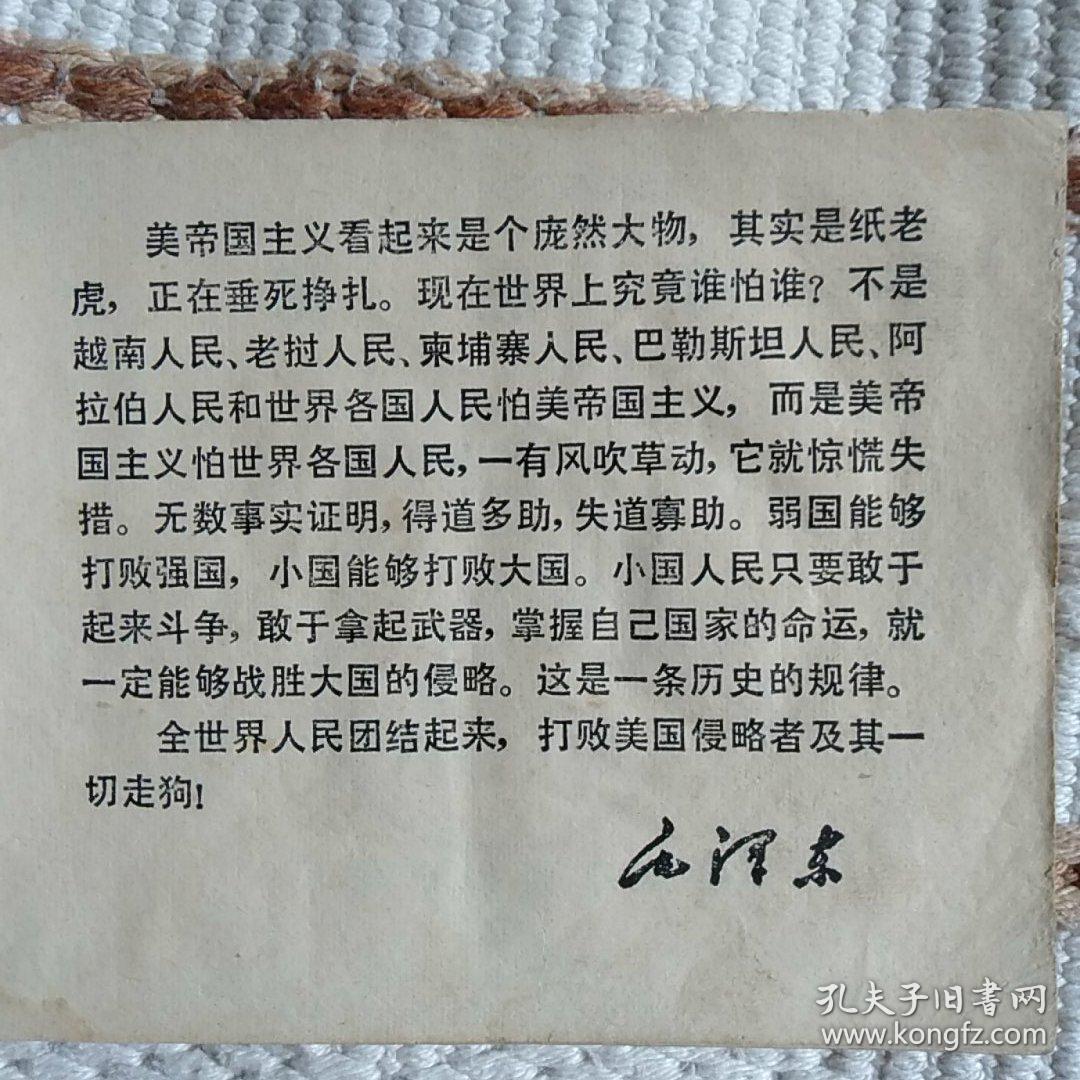 美帝国主义看起来是个庞然大物，其实是纸老
虎，正在垂死挣扎。现在世界上究竟谁怕谁？不是
越南人民、老挝人民、柬埔寨人民、巴勒斯坦人民、阿
拉伯人民和世界各国人民怕美帝国主义，而是美帝
国主义怕世界各国人民，一有风吹草动，它就惊慌失
措。无数事实证明，得道多助，失道寡助。弱国能够
打败强国，小国能够打败大国。小国人民只要敢于
起来斗争，敢于拿起武器，掌握自己国家的命运，就
一定能够战胜大国的侵略。这是一条历史的规律。
全世界人民团结起来，打败美国侵略者及其一
切走狗！
毛泽东
孔夫子旧書网
www.kongfz.com